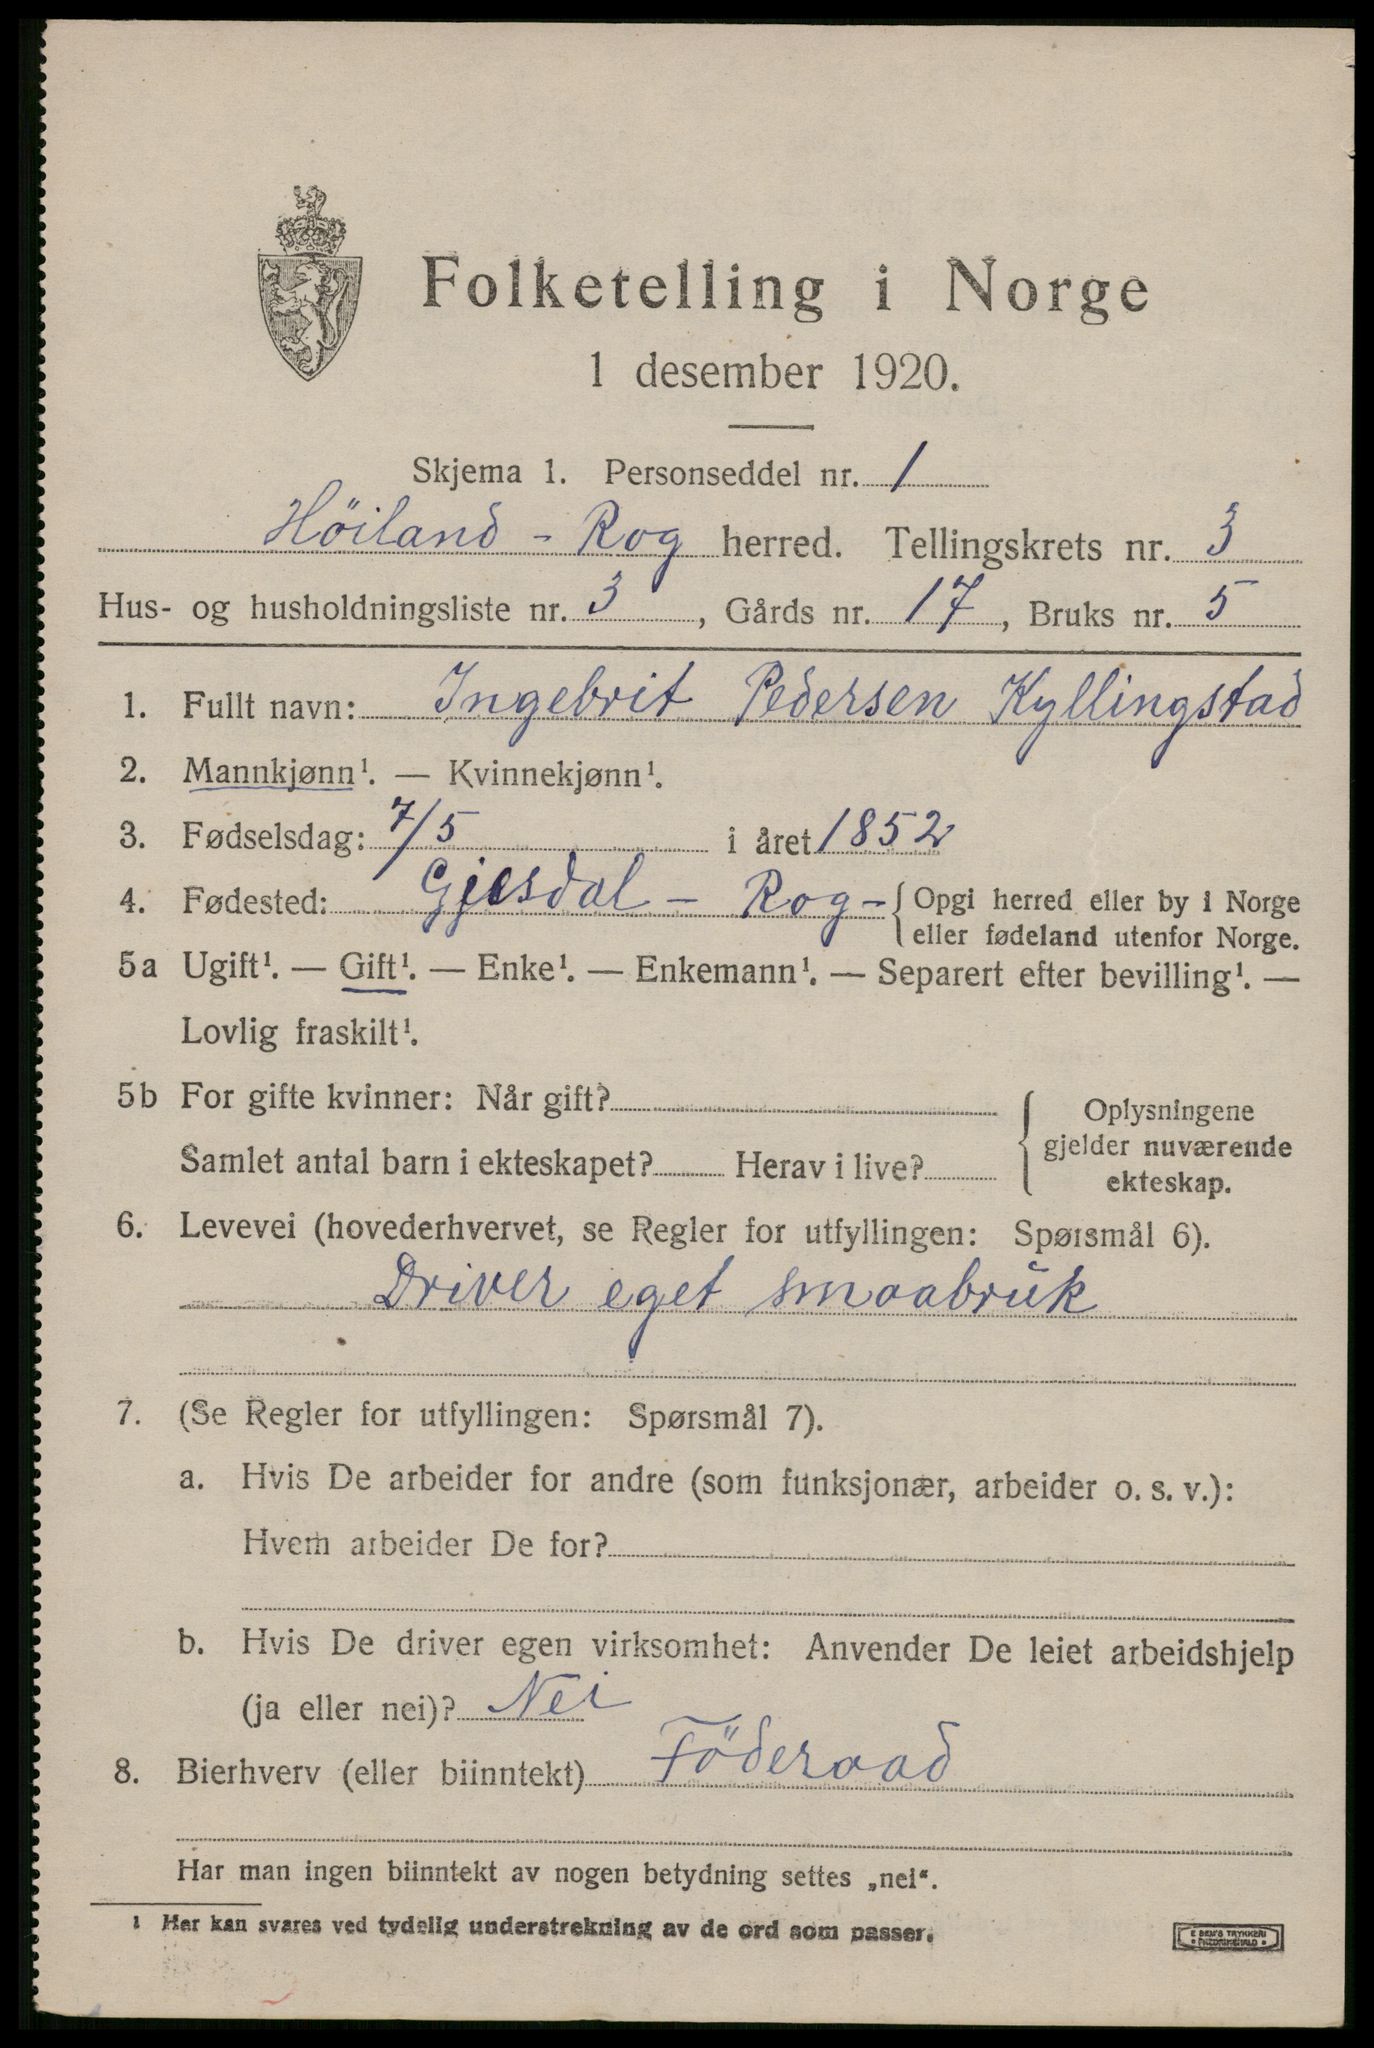 Folketelling i Norge
1 desember 1920.
Skjema 1. Personseddel nr. 1
Höiland - Rog herred. Tellingskrets nr. 3
Hus- og husholdningsliste nr. 3, Gårds nr. 17, Bruks nr. 5
1. Fullt navn: Ingebrit Pedersen Kyllingstad
2. Mannkjønn¹. — Kvinnekjønn¹.
3. Fødselsdag: 7/5 i året 1852
4. Fødested: Gjesdal - Rog - { Opgi herred eller by i Norge
eller fødeland utenfor Norge.
5a Ugift¹. — Gift¹. — Enke¹. — Enkemann¹. — Separert efter bevilling¹. —
Lovlig fraskilt¹.
5b For gifte kvinner: Når gift?
Samlet antal barn i ekteskapet? Herav i live?
{ Oplysningene
gjelder nuværende
ekteskap.
6. Levevei (hovederhvervet, se Regler for utfyllingen: Spørsmål 6).
Driver eget smaabruk
7. (Se Regler for utfyllingen: Spørsmål 7).
a. Hvis De arbeider for andre (som funksjonær, arbeider o. s. v.):
Hvem arbeider De for?
b. Hvis De driver egen virksomhet: Anvender De leiet arbeidshjelp
(ja eller nei)? Nei
8. Bierhverv (eller biinntekt) Föderaad
Har man ingen biinntekt av nogen betydning settes „nei“.
1 Her kan svares ved tydelig understrekning av de ord som passer.
E SEM'S TRYKKERI
• FREDRIKSHALD •